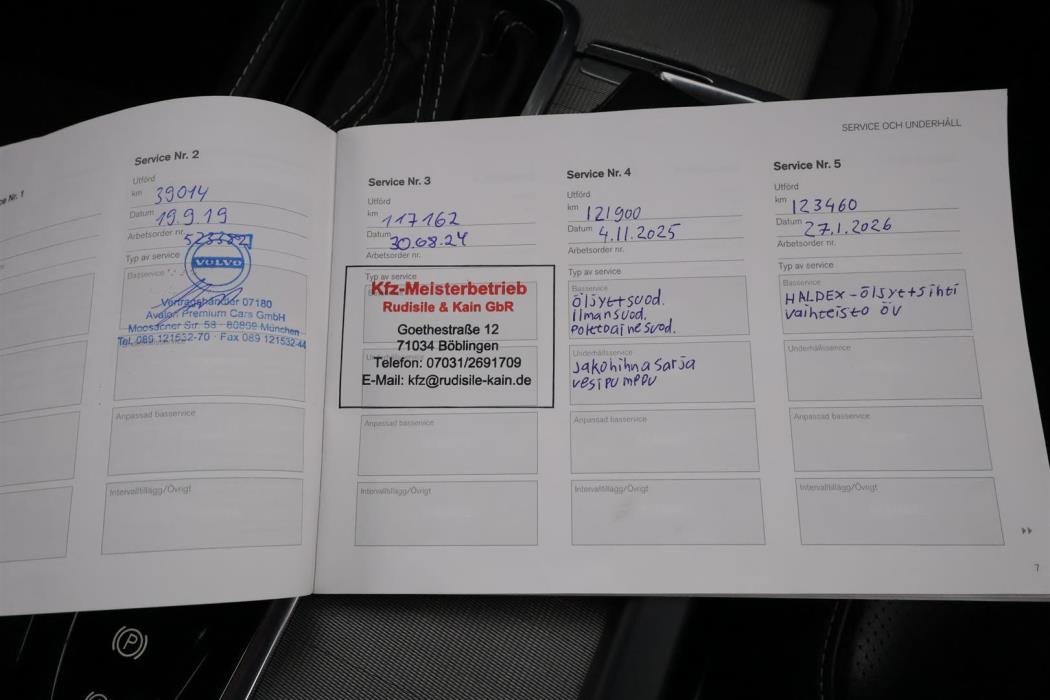 SERVICE OCH UNDERHÅLL
Nr. 1
Service Nr. 2
Utförd
km 39014
Datum 19.9.19
Arbetsorder nr. 523382
Typ av service
Basservice
VOLVO
Vertragshändler 07180
Avalon Premium Cars GmbH
Moosacher Str. 58 · 80809 München
Tel. 089 121532-70 · Fax 089 121532-44
Anpassad basservice
Intervalltillägg/Övrigt
Service Nr. 3
Utförd
km 117162
Datum 30.08.24
Arbetsorder nr.
Typ av service
Kfz-Meisterbetrieb
Rudisile & Kain GbR
Goethestraße 12
71034 Böblingen
Telefon: 07031/2691709
E-Mail: kfz@rudisile-kain.de
Anpassad basservice
Intervalltillägg/Övrigt
Service Nr. 4
Utförd
km 121900
Datum 4.11.2025
Arbetsorder nr.
Typ av service
Basservice
Öljyt+suod.
Ilmansuod.
Polttoainesuod.
Underhållsservice
Jakohihnasarja
vesipumppu
Anpassad basservice
Intervalltillägg/Övrigt
Service Nr. 5
Utförd
km 123460
Datum 27.1.2026
Arbetsorder nr.
Typ av service
Basservice
HALDEX-öljyt+sihti
vaihteisto öv
Underhållsservice
Anpassad basservice
Intervalltillägg/Övrigt
7
P